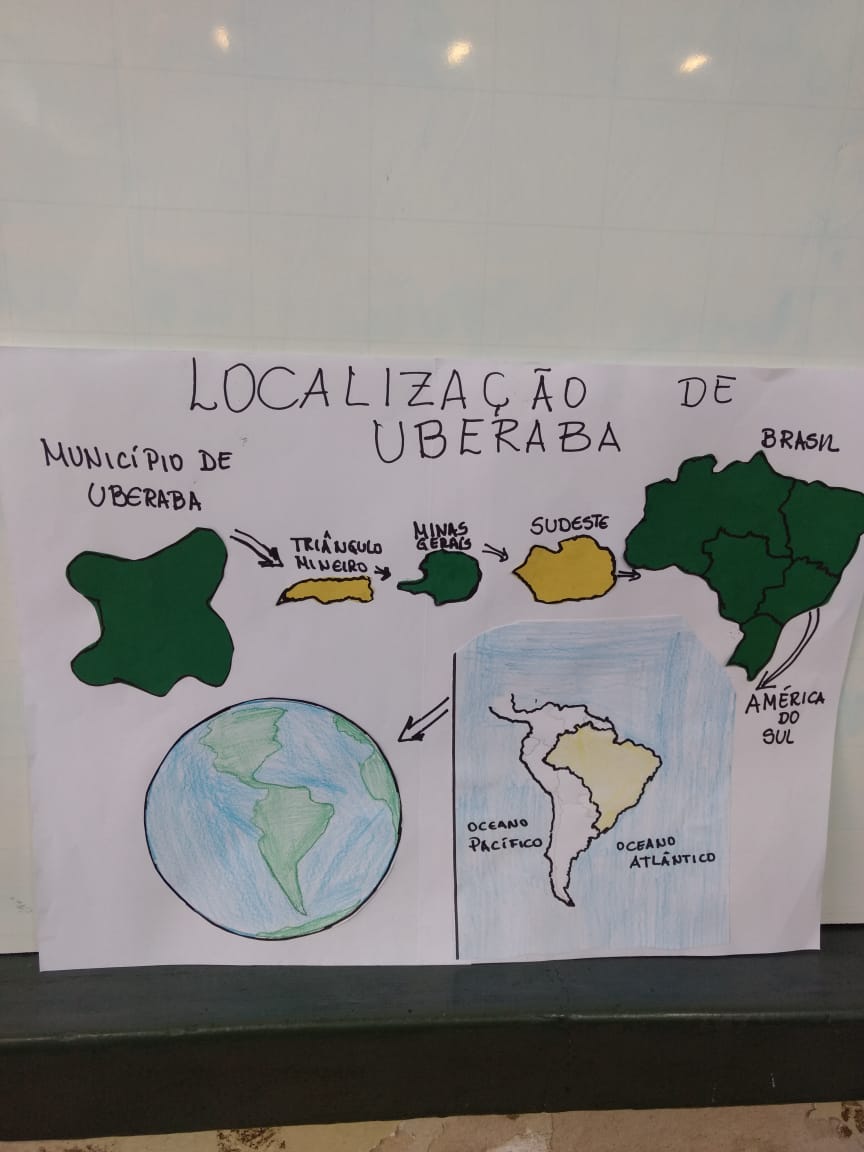 LOCALIZAÇÃO DE
UBERABA
MUNICÍPIO DE
UBERABA
TRIÂNGULO
MINEIRO
MINAS
GERAIS
SUDESTE
BRASIL
AMÉRICA
DO
SUL
OCEANO
PACÍFICO
OCEANO
ATLÂNTICO